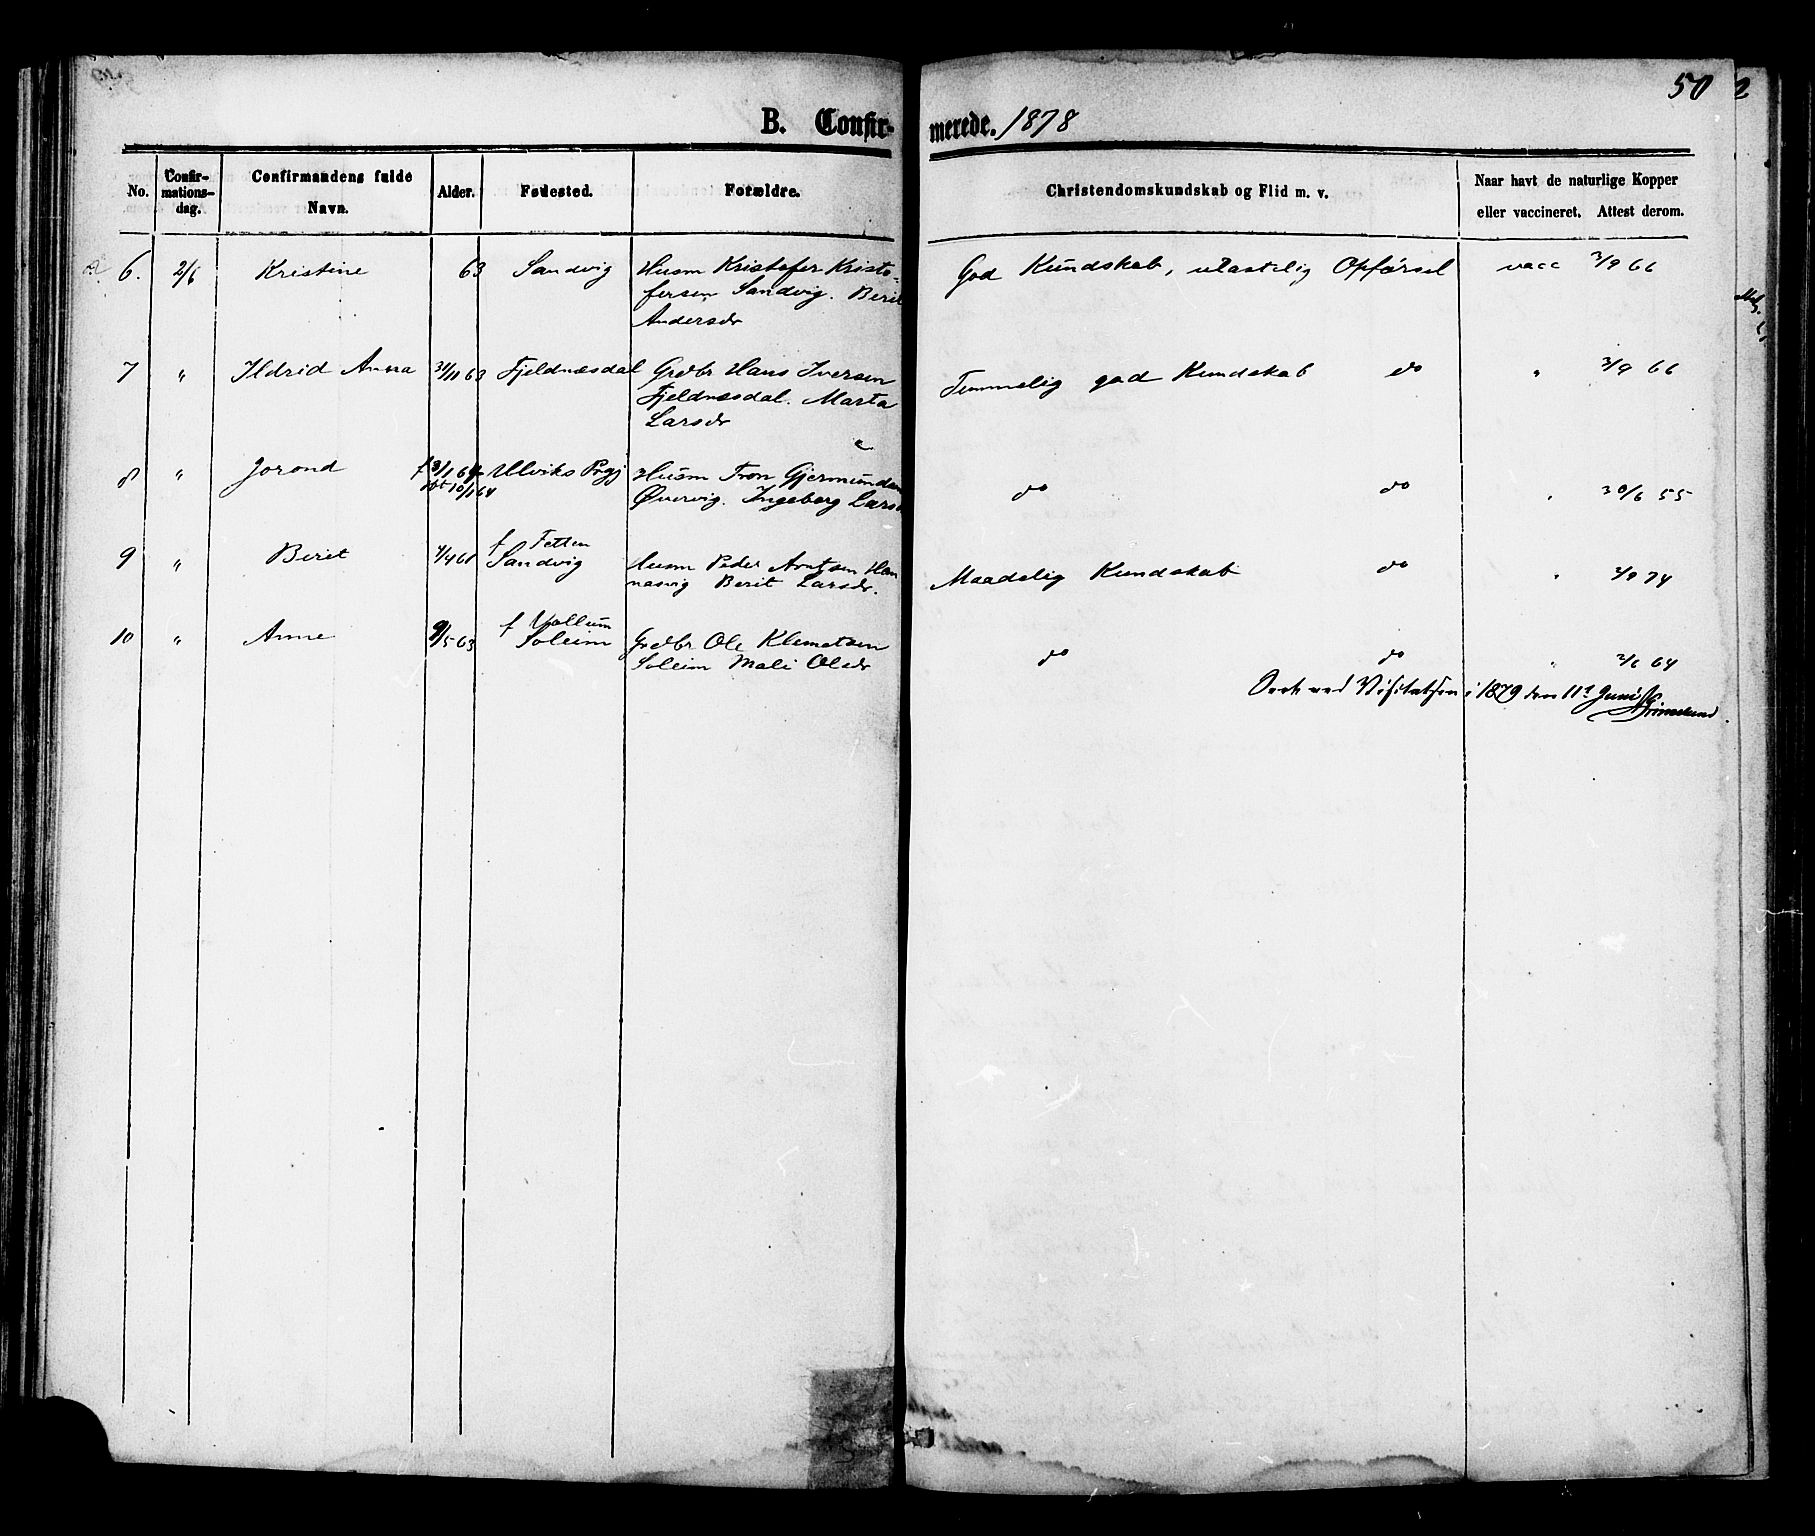 50
B. Confir- merede. 1878
No. Confir- mations- dag. Confirmandens fulde Navn. Alder. Fødested. Forældre. Christendomskundskab og Flid m. v. Naar havt de naturlige Kopper eller vaccineret. Attest derom.
6. 2/6 Kristine 63 Sandvig Husm Kristofer Kristo- God Kundskab, ulastelig Opførsel vacc 3/9 66
fersen Sandvig. Berit
Andersdr
7 " Ildrid Anna 31/11 63 Fjeldnæsdal Grdbr Hans Iversen Temmelig god Kundskab do " 3/9 66
Fjeldnæsdal. Marta
Larsdr
8 " Jorond f 3/1 64 Ulviks Prgj Husm Tron Gjermundsen do do " 30/6 55
10/1 64 Øvervig. Ingeborg Larsd
9 " Beret 4/4 61 f Fetten
Sandvig Husm Peder Arntsen Han Maadelig Kundskab do " 3/9 74
nasvig Berit Larsdr.
10 " Anne 9/5 63 f Vollum
Soleim Grdbr Ole Klemetsen do do " 2/6 64
Soleim Mali Olsdr
ved Visitatsen i 1879 den 11te Juni
Grimelund.